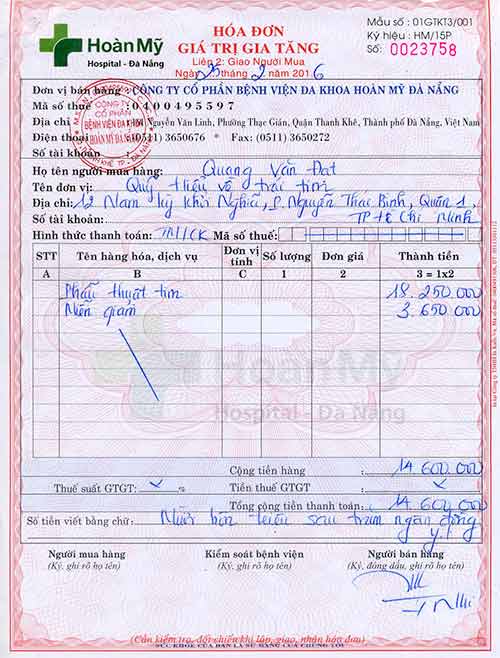 HoànMỹ
Hospital - Đà Nẵng
HÓA ĐƠN
GIÁ TRỊ GIA TĂNG
Liên 2: Giao Người Mua
Ngày 25 tháng 2 năm 2016
Mẫu số : 01GTKT3/001
Ký hiệu : HM/15P
Số: 0023758
Đơn vị bán hàng : CÔNG TY CỔ PHẦN BỆNH VIỆN ĐA KHOA HOÀN MỸ ĐÀ NẴNG
Mã số thuế : 0400495597
Địa chỉ : 291 Nguyễn Văn Linh, Phường Thạc Gián, Quận Thanh Khê, Thành phố Đà Nẵng, Việt Nam
Điện thoại : (0511) 3650676 * Fax: (0511) 3650272
Số tài khoản
CÔNG TY
CỔ PHẦN
BỆNH VIỆN ĐA KHOA
HOÀN MỸ ĐÀ NẴNG
Họ tên người mua hàng: Quang Văn Đạt
Tên đơn vị: Quỹ thiều về trái tim
Địa chỉ: 12 Nam Kỳ Khởi Nghĩa, P. Nguyễn Thái Bình, Quận 1,
Số tài khoản: TP Hồ Chí Minh
Hình thức thanh toán: TM/CK Mã số thuế:
STT Tên hàng hóa, dịch vụ Đơn vị tính Số lượng Đơn giá Thành tiền
A B C 1 2 3 = 1x2
Phẫu thuật tim 18.250.000
Miễn giảm 3.650.000
HoànMỹ
Hospital - Đà Nẵng
Cộng tiền hàng : 14.600.000
Thuế suất GTGT: % Tiền thuế GTGT :
Tổng cộng tiền thanh toán: 14.600.000
Số tiền viết bằng chữ: Mười bốn triệu sáu trăm ngàn đồng
y.
Người mua hàng Kiểm soát bệnh viện Người bán hàng
(Ký, ghi rõ họ tên) (Ký, ghi rõ họ tên) (Ký, đóng dấu, ghi rõ họ tên)
(Cần kiểm tra, đối chiếu khi lập, giao, nhận hóa đơn)
SỨC KHỎE CỦA BẠN LÀ SỨ MẠNG CỦA CHÚNG TÔI